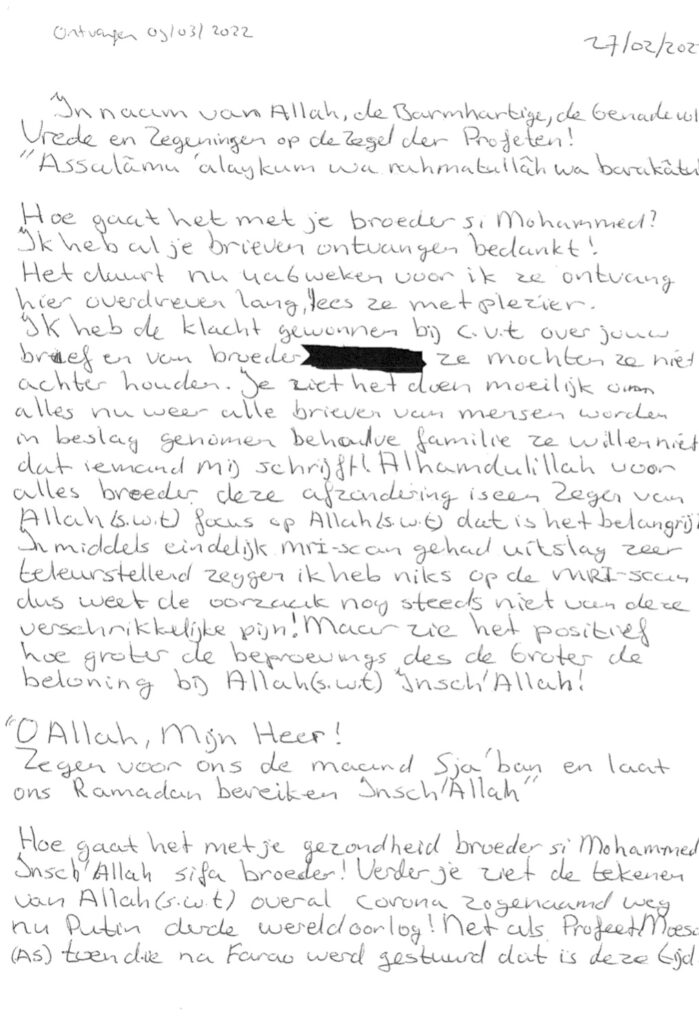 Ontvangen 09/03/2022
27/02/202
In naam van Allah, de Barmhartige, de Genadevol
Vrede en Zegeningen op de Zegel der Profeten!
"Assalâmu 'alaykum wa rahmatullâh wa barakâtu
Hoe gaat het met je broeder si Mohammed?
Ik heb al je brieven ontvangen bedankt!
Het duurt nu 4 a 6 weken voor ik ze ontvang
hier overdreven lang, lees ze met plezier.
Ik heb de klacht gewonnen bij c.v.t over jouw
brief en van broeder ze mochten ze niet
achter houden. Je ziet het doen moeilijk om
alles nu weer alle brieven van mensen worden
in beslag genomen behalve familie ze willen niet
dat iemand mij schrijft! Alhamdulillah voor
alles broeder deze afzondering is een Zegen van
Allah (s.w.t) focus op Allah (s.w.t) dat is het belangrij
Inmiddels eindelijk MRI-scan gehad uitslag zeer
teleurstellend zeggen ik heb niks op de MRI-scan
dus weet de oorzaak nog steeds niet van deze
verschrikkelijke pijn! Maar zie het positief
hoe groter de beproevings des de Groter de
beloning bij Allah (s.w.t) Insch'Allah!
"O Allah, Mijn Heer!
Zegen voor ons de maand Sja'ban en laat
ons Ramadan bereiken Insch'Allah"
Hoe gaat het met je gezondheid broeder si Mohammed
Insch'Allah sifa broeder! Verder je ziet de tekenen
van Allah (s.w.t) overal corona zogenaamd weg
nu Putin derde wereldoorlog! Net als Profeet Moesa
(AS) toen die na Farao werd gestuurd dat is deze tijd